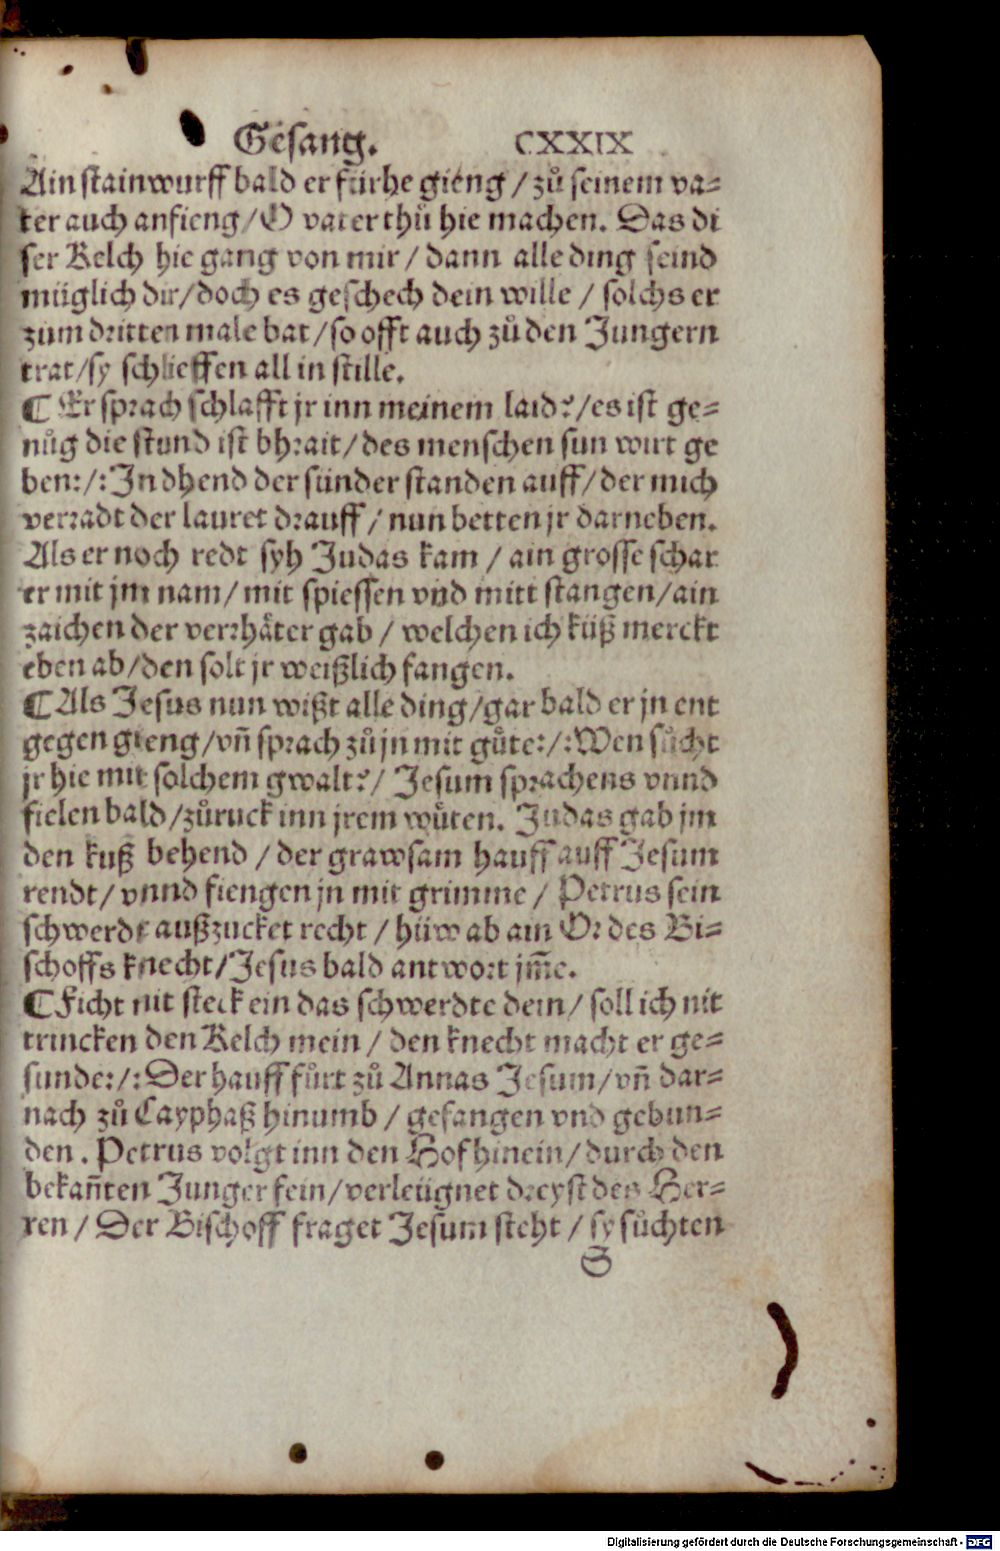 Gesang. CXXIX
Ain stainwurff bald er fürhe gieng / zů seinem va-
ter auch anfieng / O vater thů hie machen. Das di
ser Kelch hie gang von mir / dann alle ding seind
müglich dir / doch es geschech dein wille / solchs er
zum dritten male bat / so offt auch zů den Jungern
trat / sy schlieffen all in stille.
¶ Er sprach schlafft jr inn meinem laid? / es ist ge-
nůg die stund ist bhrait / des menschen sun wirt ge
ben: / : In dhend der sünder standen auff / der mich
verradt der lauret drauff / nun betten jr darneben.
Als er noch redt syh Judas kam / ain grosse schar
er mit jm nam / mit spiessen vnd mitt stangen / ain
zaichen der verrhäter gab / welchen ich küß merckt
eben ab / den solt jr weißlich fangen.
¶ Als Jesus nun wißt alle ding / gar bald er jn ent
gegen gieng / vñ sprach zů jn mit güte: / : Wen sůcht
jr hie mit solchem gwalt? / Jesum sprachens vnnd
fielen bald / zůruck inn jrem wůten. Judas gab jm
den kuß behend / der grawsam hauff auff Jesum
rendt / vnnd fiengen jn mit grimme / Petrus sein
schwerdt außzucket recht / hüw ab ain Or des Bi-
schoffs knecht / Jesus bald antwort jm̃e.
¶ Ficht nit steck ein das schwerdte dein / soll ich nit
trincken den Kelch mein / den knecht macht er ge-
sunde: / : Der hauff fůrt zů Annas Jesum / vñ dar-
nach zů Cayphaß hinumb / gefangen vnd gebun-
den. Petrus volgt inn den Hof hinein / durch den
bekañten Junger fein / verleügnet dreyst des Her-
ren / Der Bischoff fraget Jesum steht / sy sůchten
S
Digitalisierung gefördert durch die Deutsche Forschungsgemeinschaft - DFG